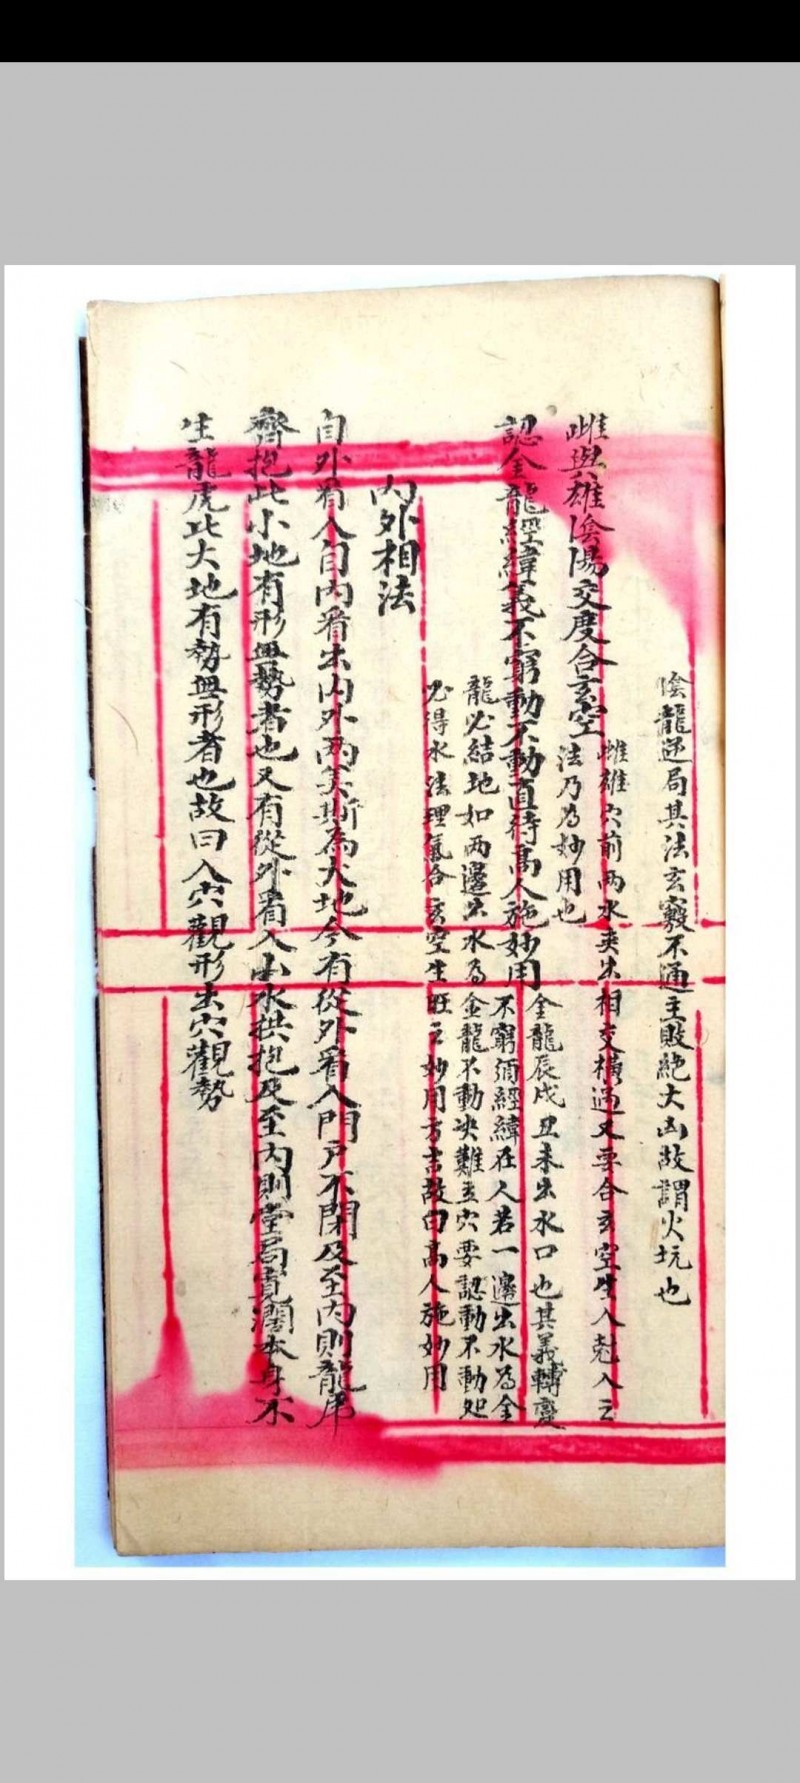 陰龍逆局其法玄竅不通主敗絶大凶故謂火坑也
雌與雄陰陽交度合玄空
雌雄穴前兩水夾出相交橫過又要合玄空生入尅入之
法乃為妙用也
認金龍經緯義不窮動不動直待高人施妙用
金龍辰戌丑未出水口也其義轉變
不窮須經緯在人若一邊出水為金
龍必結地如兩邊出水為金龍不動决難立穴要認動不動如
必得水法理氣合玄空生旺之妙用方吉故曰高人施妙用
內外相法
自外看入自內看出內外兩美斯為大地今有從外看入門戶不閉及至內則龍虎
齊抱此小地有形無勢者也又有從外看入山水拱抱及至內則堂局寬濶本身不
生龍虎此大地有勢無形者也故曰入穴觀形出穴觀勢